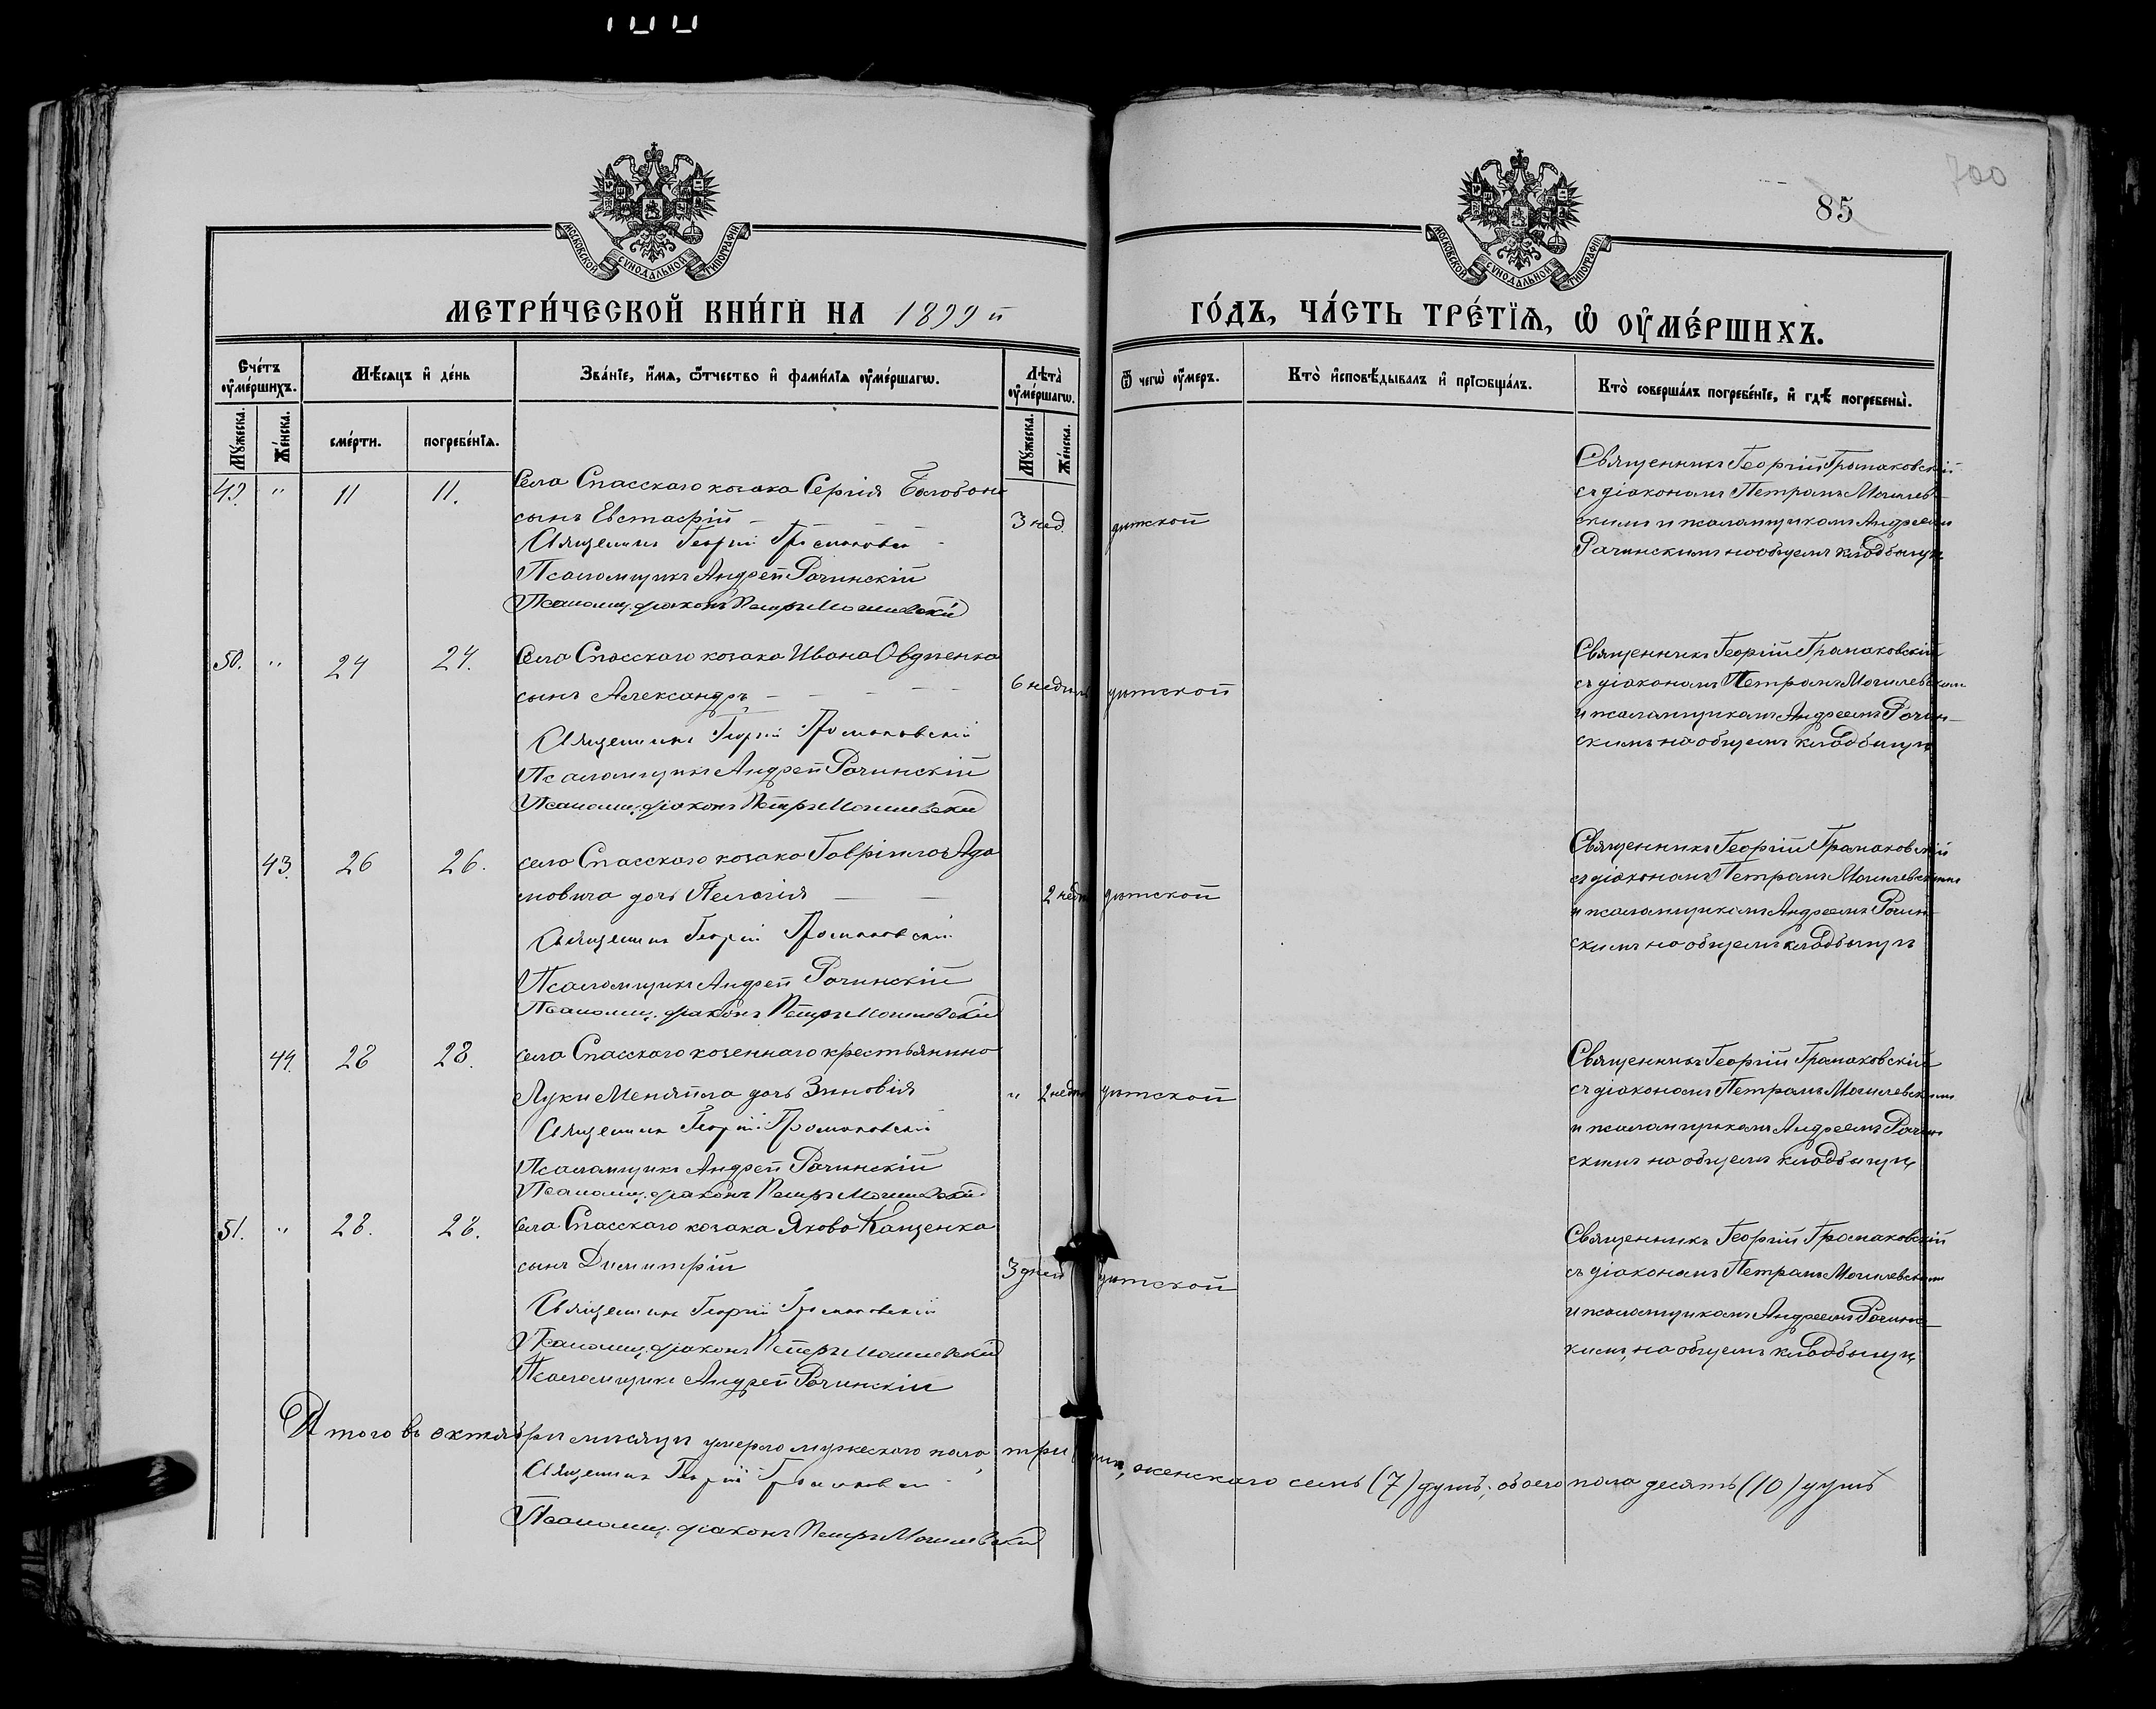 700
85
МОСКОВСКОЙ СѴНОДАЛЬНОЙ ТИПОГРАФІИ
МОСКОВСКОЙ СѴНОДАЛЬНОЙ ТИПОГРАФІИ
МЕТРИ́ЧЕСКОЙ КНИ́ГИ НА 1899 й ГО́ДЪ, ЧА́СТЬ ТРЕ́ТЇѦ, Ѡ ОУМЕ́РШИХЪ.
Сче́тъ оумершихъ.
Мѣсяцъ и де́нь
Зва́нїе, и́мя, ѿтчество и фами́лїя оуме́ршагѡ.
Лѣта̀ оуме́ршагѡ.
Ѿ чегѡ̀ оумеръ.
Кто̀ исповѣдывалъ и прїѡбща́лъ.
Кто̀ соверша́лъ погребе́нїе, и гдѣ погребены̀.
Мужеска.
Же́нска.
сме́рти.
погребе́нїя.
Мужеска.
Же́нска.
49. " 11 11. Села Спасскаго козака Сергія
сынъ Евстафій 3 нед. дѣтской
Священникъ Георгій Громаковскій
Псаломщикъ Андрей Рачинскій
Псаломщ. діаконъ Петръ Могилевскій
Священникъ Георгій Громаковскій
съ діаконамъ Петромъ Могилев-
скимъ и псаломщикомъ Андреемъ
Рачинскимъ на общемъ кладбищѣ
50. " 24 24. Села Спасскаго козака Ивана Овдѣенка
сынъ Александръ 6 недѣль дѣтской
Священникъ Георгій Громаковскій
Псаломщикъ Андрей Рачинскій
Псаломщ. діаконъ Петръ Могилевскій
Священникъ Георгій Громаковскій
съ діаконамъ Петромъ Могилевскимъ
и псаломщикомъ Андреемъ Рачин-
скимъ на общемъ кладбищѣ
43. 26 26. села Спасскаго козака Гавріила Ада
мовича дочь Пелагія 2 недѣ дѣтской
Священникъ Георгій Громаковскій
Псаломщикъ Андрей Рачинскій
Псаломщ. діаконъ Петръ Могилевскій
Священникъ Георгій Громаковскій
съ діаконамъ Петромъ Могилевскимъ
и псаломщикомъ Андреемъ Рачин-
скимъ на общемъ кладбищѣ
44. 28 28. села Спасскаго козеннаго крестьянина
Луки Меняйла дочь Зиновія " 2 недѣ дѣтской
Священникъ Георгій Громаковскій
Псаломщикъ Андрей Рачинскій
Псаломщ. діаконъ Петръ Могилевскій
Священникъ Георгій Громаковскій
съ діаконамъ Петромъ Могилевскимъ
и псаломщикомъ Андреемъ Рачин
скимъ на общемъ кладбищѣ
51. " 28. 28. Села Спасскаго козака Якова Каценка
сынъ Димитрій 3 дней дѣтской
Священникъ Георгій Громаковскій
Псаломщ. діаконъ Петръ Могилевскій
Псаломщикъ Андрей Рачинскій
Священникъ Георгій Громаковскій
съ діаконамъ Петромъ Могилевскимъ
и псаломщикомъ Андреемъ Рачинс-
кимъ, на общемъ кладбищѣ
Итого въ октябрѣ мѣсяцѣ умерло мужескаго пола три души, женскаго семь (7) душъ, обоего пола десять (10) душъ
Священникъ Георгій Громаковскій
Псаломщ. діаконъ Петръ Могилевскій